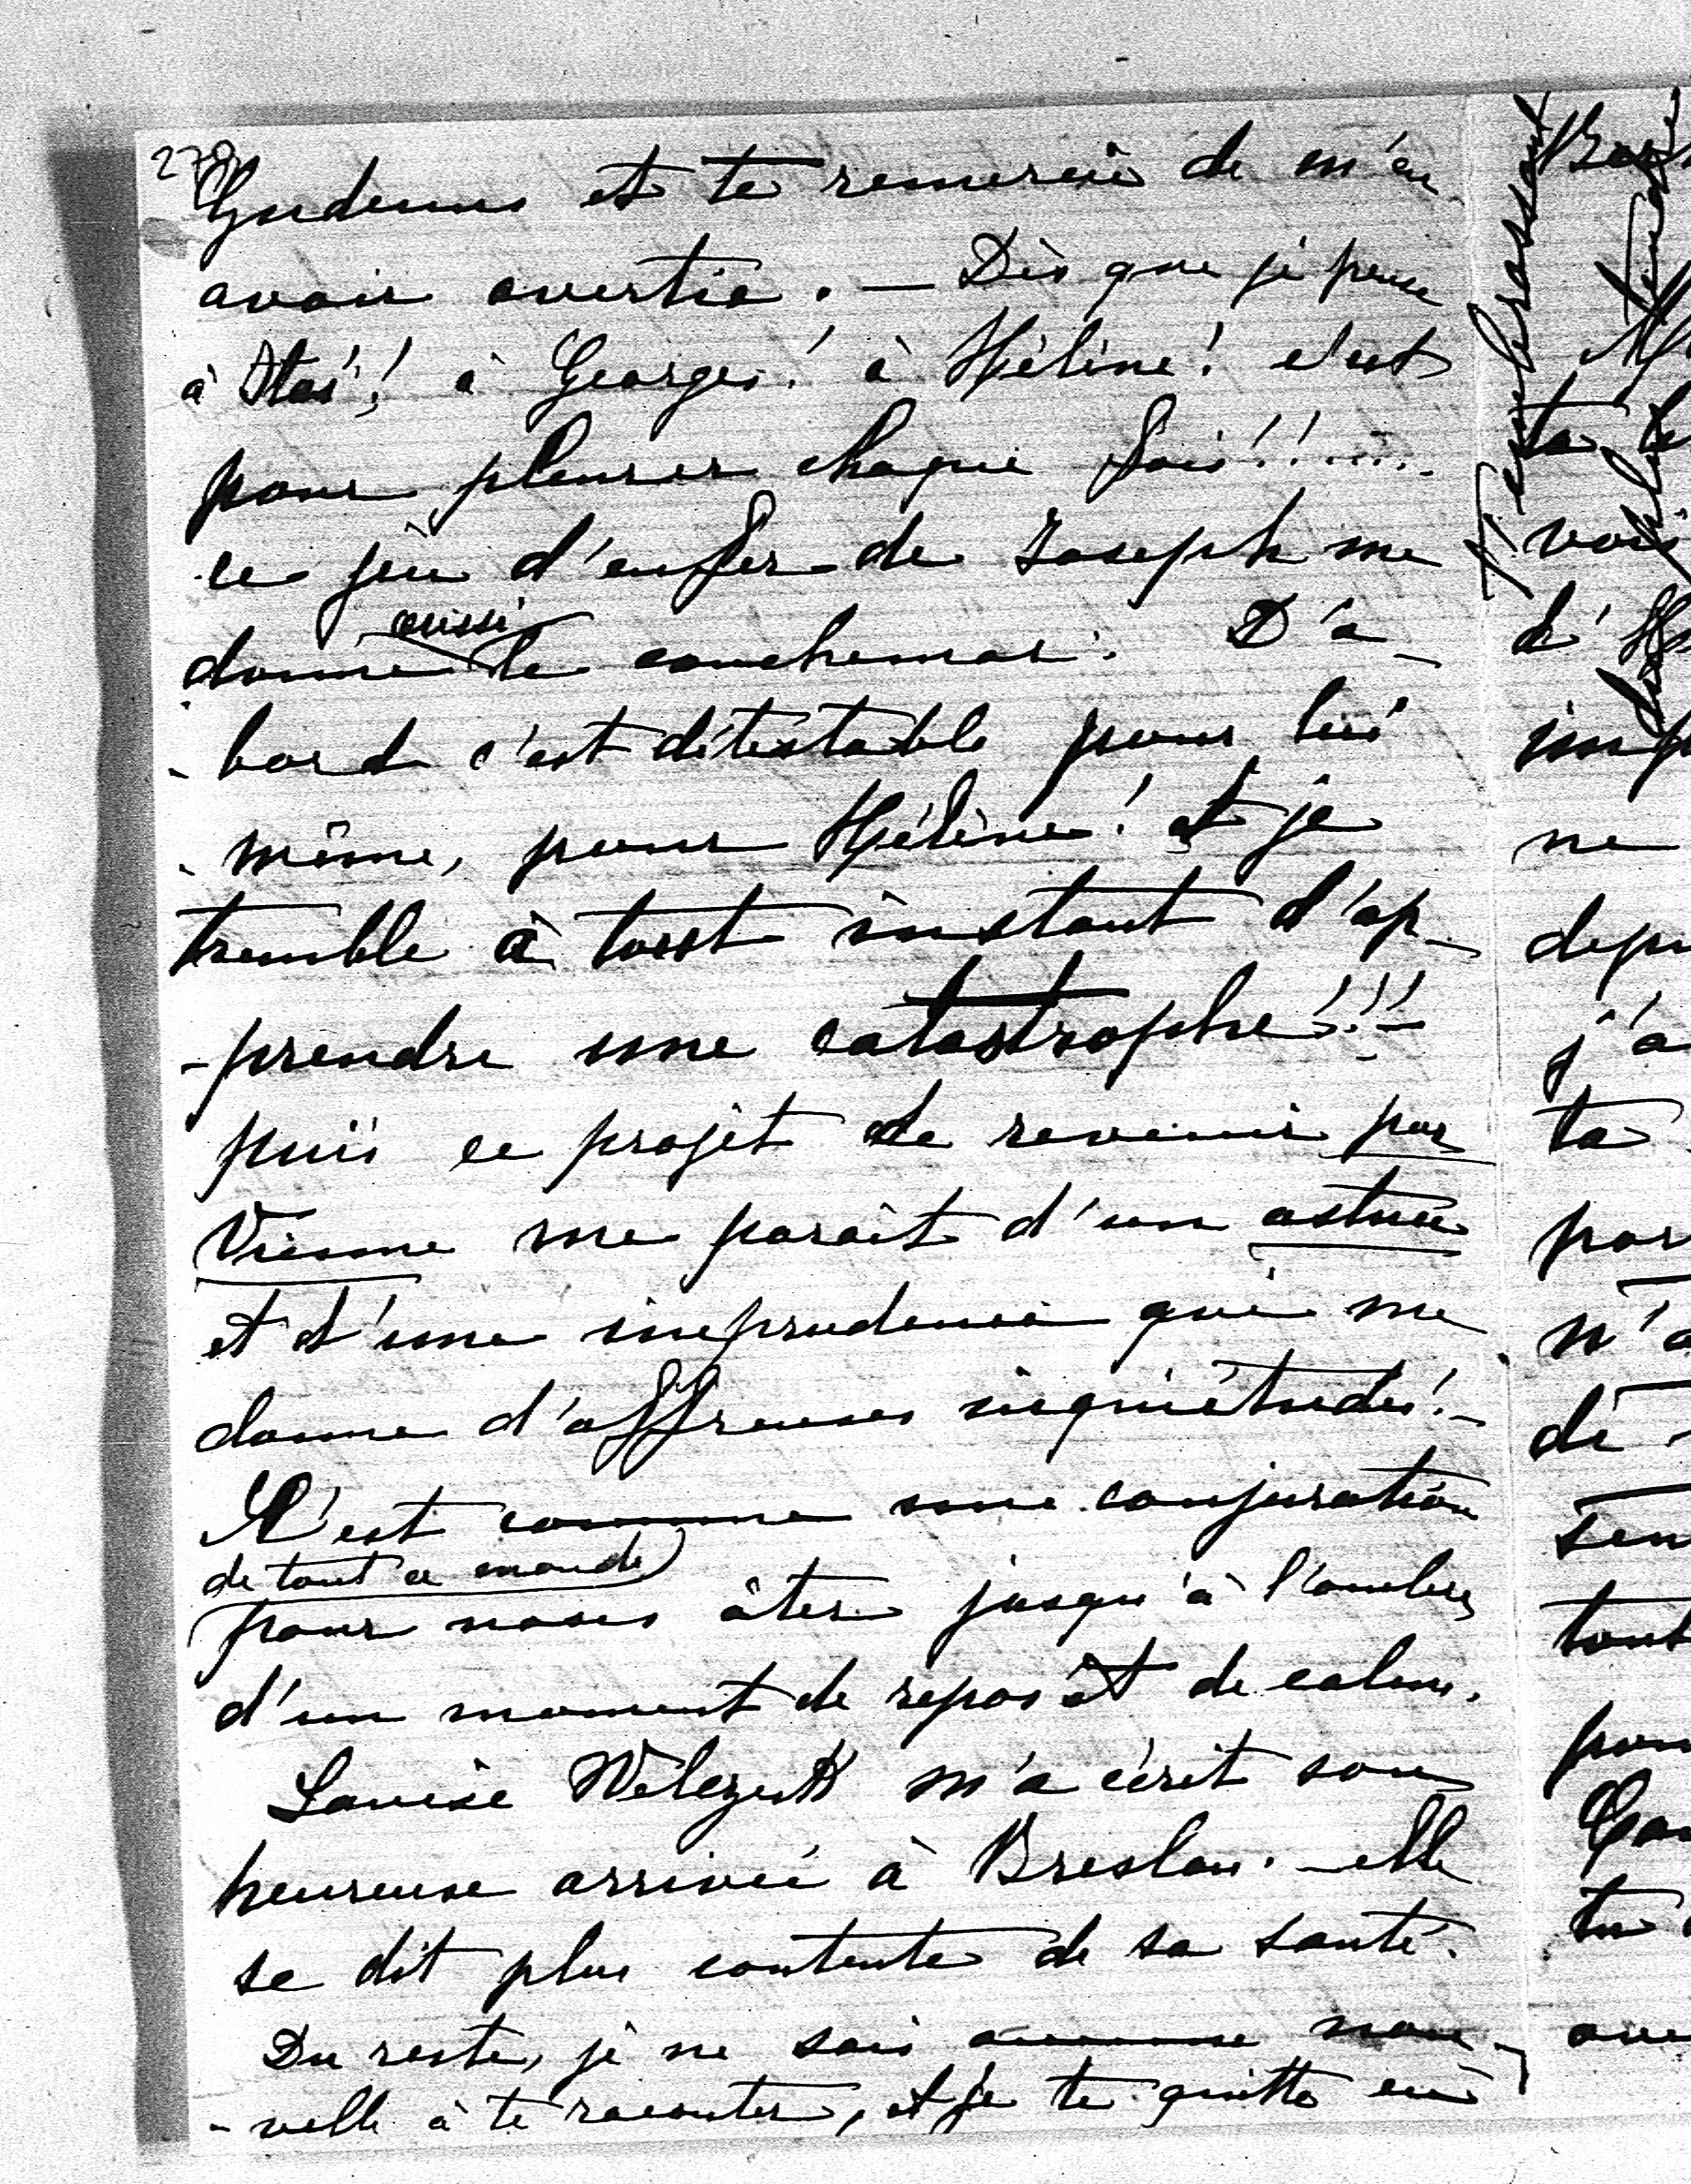 278
Gudenus et te remercie de m'en
avoir avertie. — Dès que je pense
à Stas'! à Georges! à Hélène! c'est
pour pleurer chaque fois!!......
ce jeu d'enfer de Joseph me
aussi
donne le cauchemar. D'a-
-bord c'est détestable pour lui
-même, pour Hélène! et je
tremble à tout instant d'ap-
-prendre une catastrophe!!! —
puis ce projet de revenir par
Vienne me paraît d'un
et d'une imprudence qui me
donne d'affreuses inquiétudes! —
C'est comme une conjuration
de tout ce monde
pour nous ôter jusqu'à l'ombre
d'un moment de repos et de calme.
Louise Welczeck m'a écrit son
heureuse arrivée à Breslau. — elle
se dit plus contente de sa santé.
Du reste, je ne sais aucune nou-
-velle à te raconter, et je te quitte en
Tendresses
ta
voi
d'H
imp
ne
depu
j'a
ta
par
n'a
de
sen
tout
pour
tu
ave